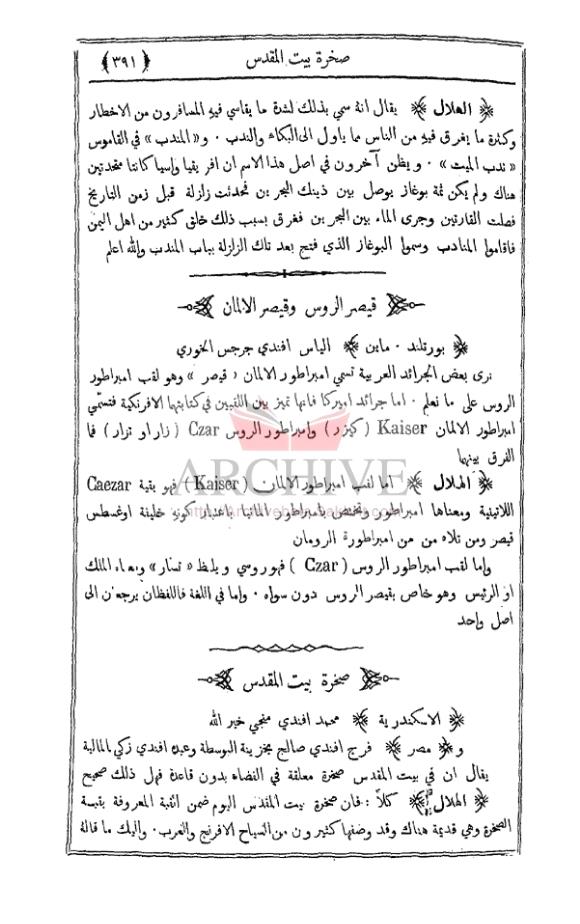 صخرة بيت المقدس ﴿٣٩١﴾
﴿ الهلال ﴾ يقال انهُ سمي بذلك لشدة ما يقاسي فيهِ المسافرون من الاخطار
وكثرة ما يغرق فيهِ من الناس مما ياول الى البكاء والندب · و«المندب» في القاموس
« ندب الميت » · ويظن آخرون في اصل هذا الاسم ان افريقيا واسيا كانتا متحدتين
هناك ولم يكن ثمة بوغاز يوصل بين ذينك البحرين فحدثت زلزلة قبل زمن التاريخ
فصلت القارتين وجرى الماء بين البحرين فغرق بسبب ذلك خلق كثير من اهل اليمن
فاقاموا المنادب وسموا البوغاز الذي فتح بعد تلك الزلزلة بباب المندب والله اعلم
قيصر الروس وقيصر الالمان
﴿ بورتلند · ماين ﴾ الياس افندي جرجس الخوري
نرى بعض الجرائد العربية تسمي امبراطور الالمان « قيصر » وهو لقب امبراطور
الروس على ما نعلم · اما جرائد اميركا فانها تميز بين اللقبين في كتابتها الافرنكية فتسمي
امبراطور الالمان Kaiser ( كيزر ) وامبراطور الروس Czar ( زار او تزار ) فما
الفرق بينها
ARCHIVE
﴿ الهلال ﴾ اما لقب امبراطور الالمان ( Kaiser ) فهو بقية Caezar
اللاتينية ومعناها امبراطور وتختص بامبراطور المانيا باعتبار كونهِ خليفة اوغسطس
قيصر ومن تلاه من من امبراطورة الرومان
واما لقب امبراطور الروس ( Czar ) فهو روسي ويلفظ « تسار » ومعناه الملك
او الرئيس وهو خاص بقيصر الروس دون سواه · واما في اللغة فاللفظان يرجعان الى
اصل واحد
صخرة بيت المقدس
﴿ الاسكندرية ﴾ محمد افندي منجي خير الله
و﴿ مصر ﴾ فرج افندي صالح بخزينة الوسطة وعبده افندي زكي بالمالية
يقال ان في بيت المقدس صخرة معلقة في الفضاء بدون قاعدة فهل ذلك صحيح
﴿ الهلال ﴾ كلاَّ : فان صخرة بيت المقدس اليوم ضمن القبة المعروفة بقبة
الصخرة وهي قديمة هناك وقد وصفها كثيرون من السياح الافرنج والعرب · واليك ما قالهُ